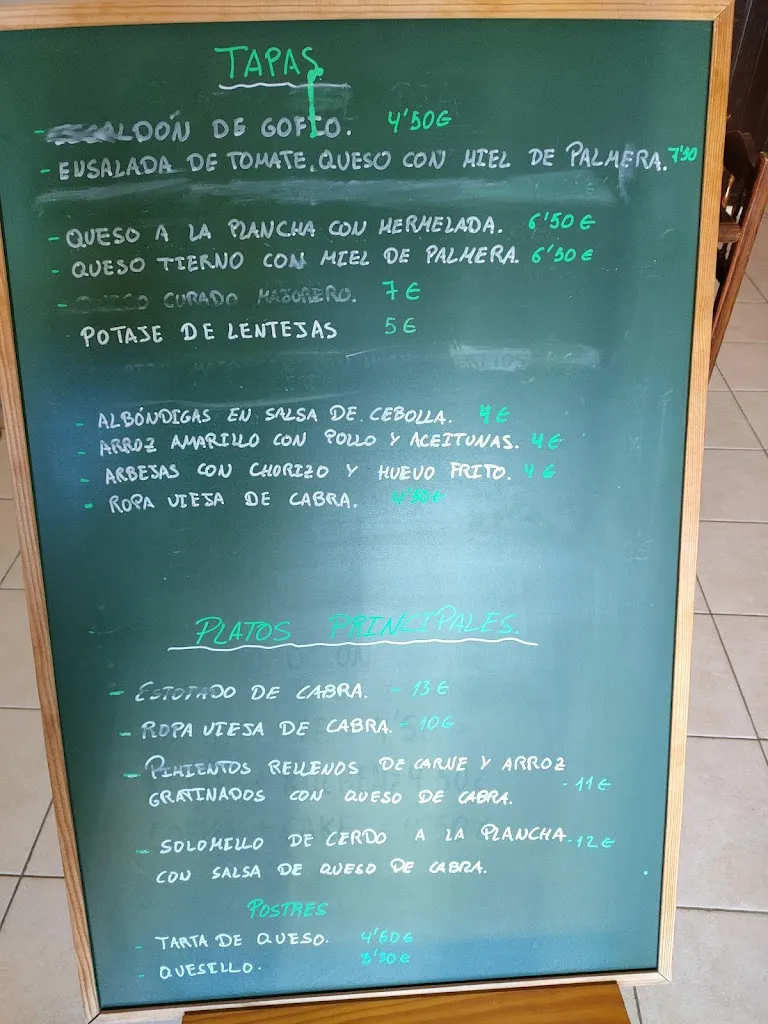 TAPAS
- ESCALDÓN DE GOFIO. 4'50€
- ENSALADA DE TOMATE, QUESO CON MIEL DE PALMERA. 7'50
- QUESO A LA PLANCHA CON MERMELADA. 6'50€
- QUESO TIERNO CON MIEL DE PALMERA. 6'50€
- QUESO CURADO MAJORERO. 7€
POTAJE DE LENTEJAS 5€
- ALBÓNDIGAS EN SALSA DE CEBOLLA. 4€
- ARROZ AMARILLO CON POLLO Y ACEITUNAS. 4€
- ARBEJAS CON CHORIZO Y HUEVO FRITO. 4€
- ROPA VIEJA DE CABRA. 4'50€
PLATOS PRINCIPALES.
- ESTOFADO DE CABRA. - 13€
- ROPA VIEJA DE CABRA. - 10€
- PIMIENTOS RELLENOS DE CARNE Y ARROZ
GRATINADOS CON QUESO DE CABRA. - 11€
- SOLOMILLO DE CERDO A LA PLANCHA - 12€
CON SALSA DE QUESO DE CABRA.
POSTRES
- TARTA DE QUESO. 4'60€
- QUESILLO. 3'50€